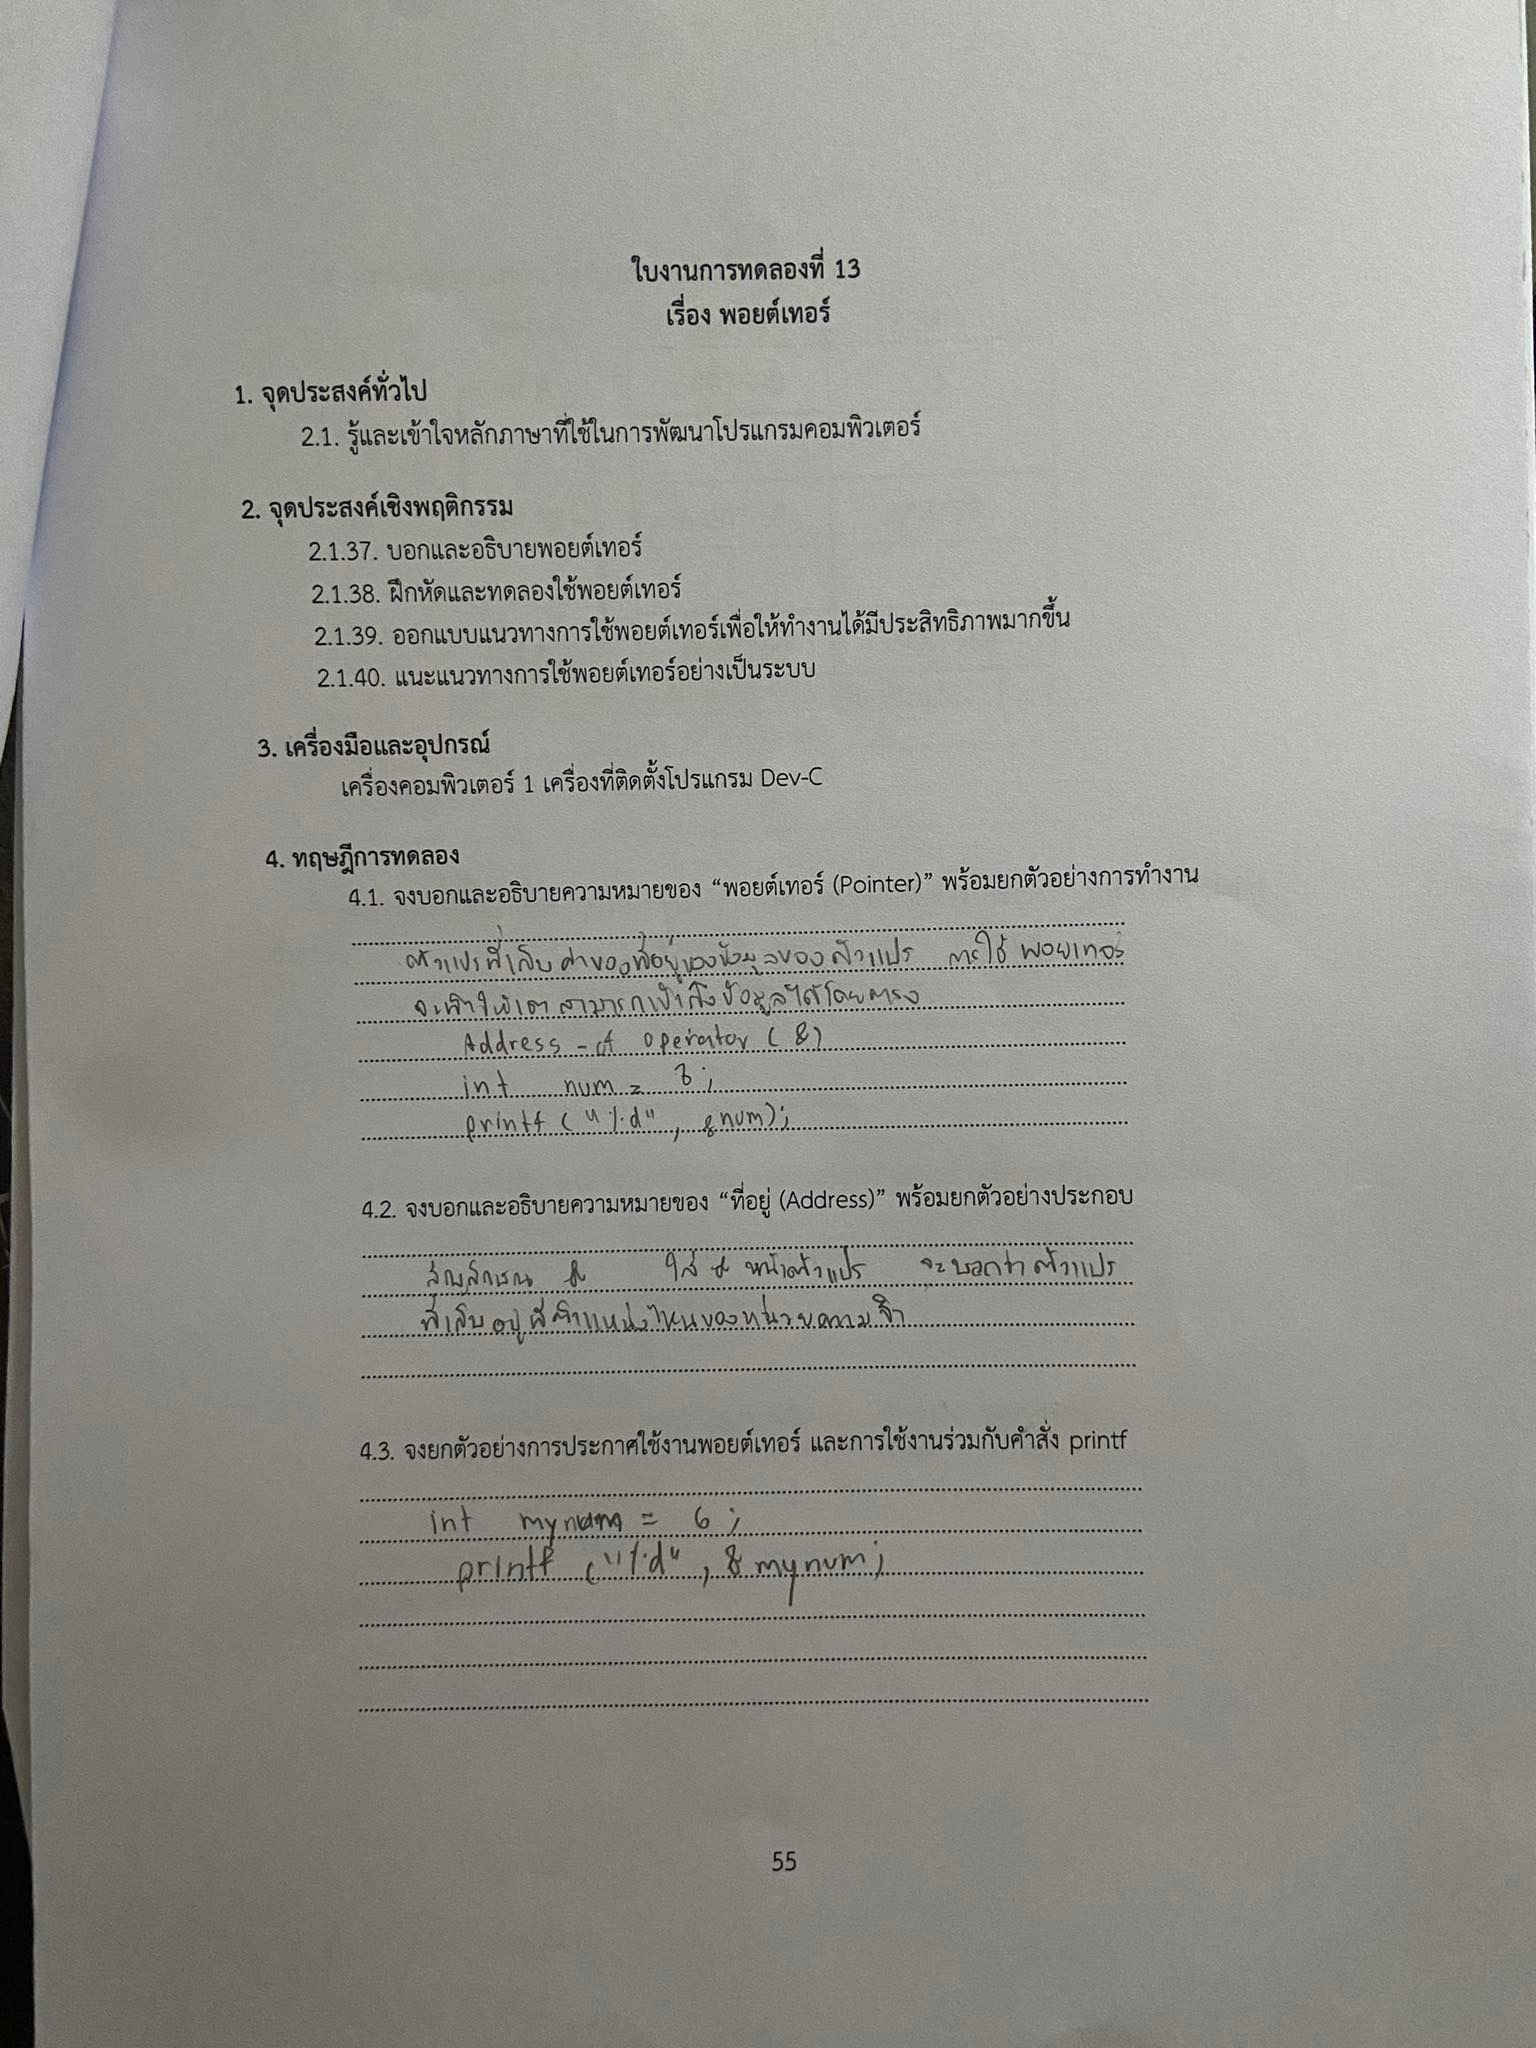 ใบงานการทดลองที่ 13
เรื่อง พอยต์เทอร์
1. จุดประสงค์ทั่วไป
2.1. รู้และเข้าใจหลักภาษาที่ใช้ในการพัฒนาโปรแกรมคอมพิวเตอร์
2. จุดประสงค์เชิงพฤติกรรม
2.1.37. บอกและอธิบายพอยต์เทอร์
2.1.38. ฝึกหัดและทดลองใช้พอยต์เทอร์
2.1.39. ออกแบบแนวทางการใช้พอยต์เทอร์เพื่อให้ทำงานได้มีประสิทธิภาพมากขึ้น
2.1.40. แนะแนวทางการใช้พอยต์เทอร์อย่างเป็นระบบ
3. เครื่องมือและอุปกรณ์
เครื่องคอมพิวเตอร์ 1 เครื่องที่ติดตั้งโปรแกรม Dev-C
4. ทฤษฎีการทดลอง
4.1. จงบอกและอธิบายความหมายของ “พอยต์เทอร์ (Pointer)” พร้อมยกตัวอย่างการทำงาน
ตัวแปรที่เก็บค่าของที่อยู่ของข้อมูลของตัวแปร การใช้ พอยเทอร์
จะทำให้เราสามารถเข้าถึงข้อมูลได้โดยตรง
Address-of operator (&)
int num = 3;
printf("%d", &num);
4.2. จงบอกและอธิบายความหมายของ “ที่อยู่ (Address)” พร้อมยกตัวอย่างประกอบ
สัญลักษณ & ใส่ & หน้าตัวแปร จะบอกว่าตัวแปร
ที่เก็บอยู่ที่ตำแหน่งไหนของหน่วยความจำ
4.3. จงยกตัวอย่างการประกาศใช้งานพอยต์เทอร์ และการใช้งานร่วมกับคำสั่ง printf
int mynum = 6;
printf ("%d", &mynum;
55